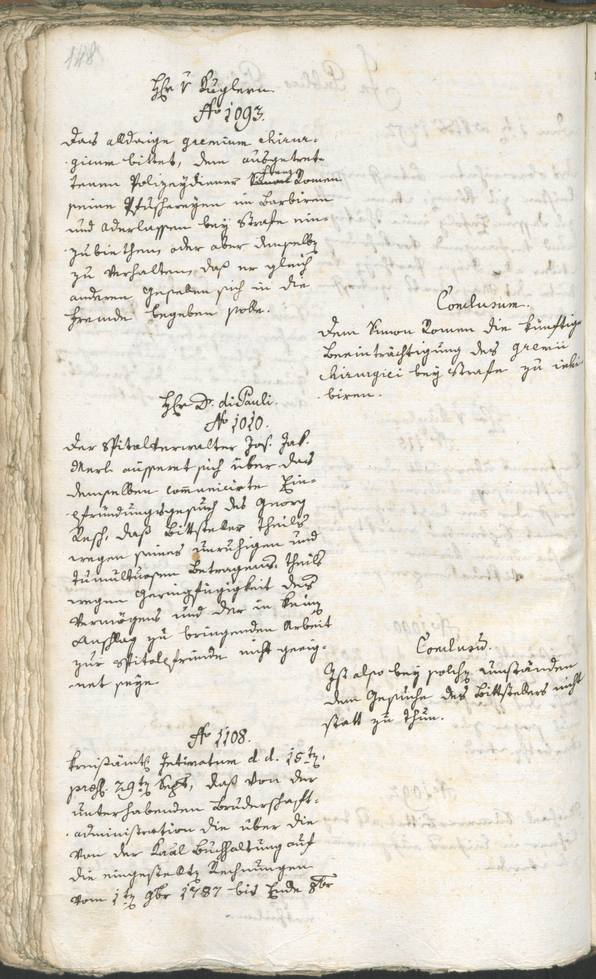 148
Hr v Kuglern.
No 1093.
Das alldaige gremium chirur-
gicum bittet, dem ausgetret-
tenen Polizeydiener Simon Franz Romen
seine Pfuschereyen im Barbiren
und Aderlassen bey Strafe ein-
zubiethen, oder aber denselb
zu verhalten, daß er gleich
anderen Gesellen sich in die
Fremde begeben solle.
Conclusum.
Dem Simon Romen die künftige
Beeinträchtigung des gremii
chirurgici bey Strafe zu inhi-
biren.
Hr D. di Pauli.
No 1010.
Der Spitalverwalter Jos. Jak.
Merl aussert sich über das
demselben communicirte Ein-
pfründungsgesuch des Georg
Resch, daß Bittsteller theils
wegen seines unruhigen und
tumultuosen Betragens, theils
wegen Geringfügigkeit des
Vermögens und der in keinen
Anschlag zu bringenden Arbeit
zur Spitalpfründe nicht geeig-
net seye.
Conclusum.
Ist also bey solchen Umständen
dem Gesuche des Bittstellers nicht
statt zu thun.
No 1108.
Kreisämtl. Intimatum d. d. 15ten,
29ten Sept, daß von der
unterhabenden Bruderschaft-
administration die über die
von der Kaal Buchhaltung auf
die eingestellten Rechnungen
vom 1ten 9br 1787 bis Ende 8br